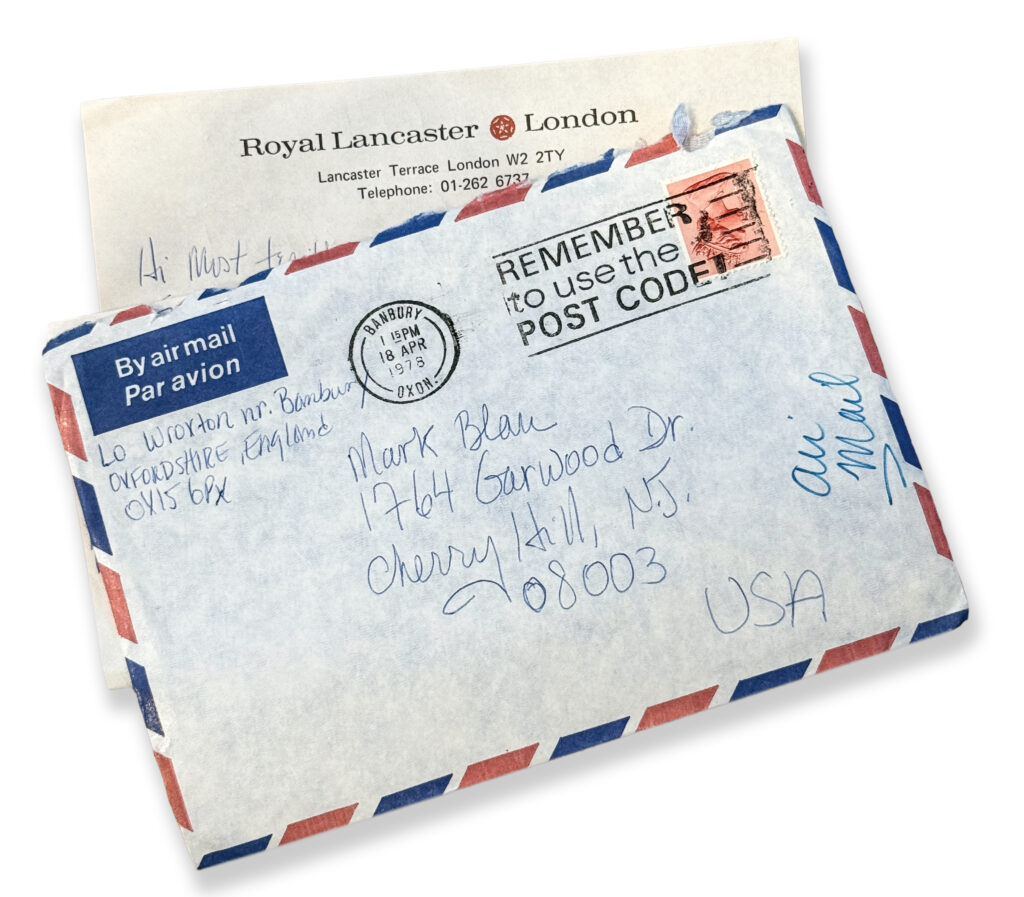 Royal Lancaster London
Lancaster Terrace London W2 2TY
Telephone: 01-262 6737
Hi Most
REMEMBER
to use the
POST CODE!
BANBURY
1 15 PM
18 APR
1978
OXON.
By air mail
Par avion
Lo Wroxton nr. Banbury
OXFORDSHIRE, England
OX15 6PX
Mark Blau
1764 Garwood Dr.
Cherry Hill, N.J.
08003
USA
air
mail